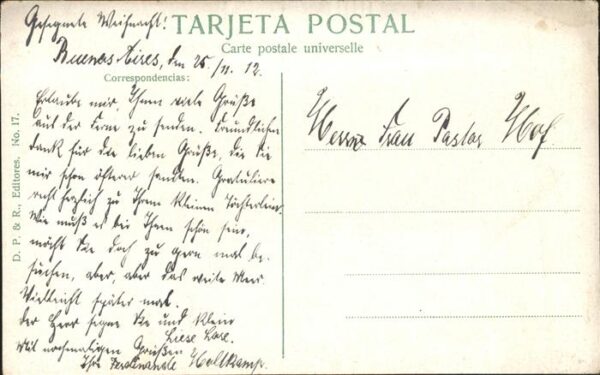 Gesegnete Weihnacht!
TARJETA POSTAL
Carte postale universelle
Buenos Aires, den 25/11. 12.
Correspondencias:
Erlaube mir, Ihnen viele Grüße
aus der Ferne zu senden. Freundlichen
Dank für die lieben Grüße, die Sie
mir schon öfterer sandten. Gratuliere
recht herzlich zu Ihrem kleinen Töchterlein.
Wie muß es bei Ihnen schön sein,
möcht Sie doch zu gern mal be-
suchen, aber, aber das weite Meer.
Vielleicht später mal.
Der Herr segne Sie und klein
Liese Lore.
Mit nochmaligen Grüßen
Ihre Holtkamp.
Herrn Frau Pastor Hof.
D. P. & R., Editores. No. 17.